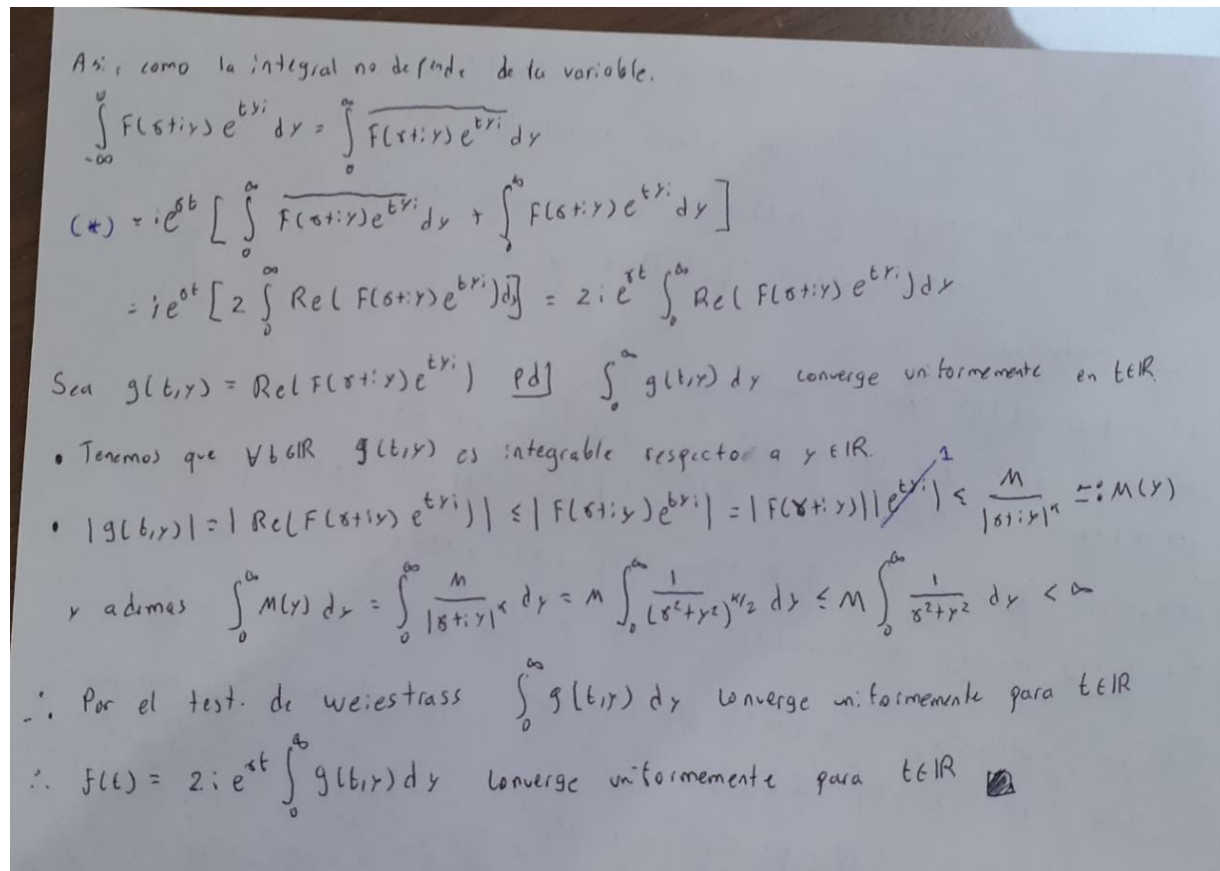 Asi, como la integral no depende de la variable.
∫_{-∞}^{0} F(γ+iy) e^{tyi} dy = ∫_0^∞ \overline{F(γ+iy) e^{tyi}} dy
(*) = i e^{γt} [ ∫_0^∞ \overline{F(γ+iy) e^{tyi}} dy + ∫_0^∞ F(γ+iy) e^{tyi} dy ]
= i e^{γt} [ 2 ∫_0^∞ Re( F(γ+iy) e^{tyi} ) dy ] = 2 i e^{γt} ∫_0^∞ Re( F(γ+iy) e^{tyi} ) dy
Sea g(t,y) = Re( F(γ+iy) e^{tyi} ) pd] ∫_0^∞ g(t,y) dy converge uniformemente en t∈ℝ.
• Tenemos que ∀t∈ℝ g(t,y) es integrable respecto a y∈ℝ.
1
• |g(t,y)| = | Re( F(γ+iy) e^{tyi} ) | ≤ | F(γ+iy) e^{tyi} | = | F(γ+iy) | | e^{tyi} | ≤ M/|γ+iy|^κ =: M(y)
y ademas ∫_0^∞ M(y) dy = ∫_0^∞ M/|γ+iy|^κ dy = M ∫_0^∞ 1/(γ²+y²)^{κ/2} dy ≤ M ∫_0^∞ 1/(γ²+y²) dy < ∞
∴ Por el test. de weiestrass ∫_0^∞ g(t,y) dy converge uniformemente para t∈ℝ
∴ f(t) = 2 i e^{γt} ∫_0^∞ g(t,y) dy converge uniformemente para t∈ℝ ■